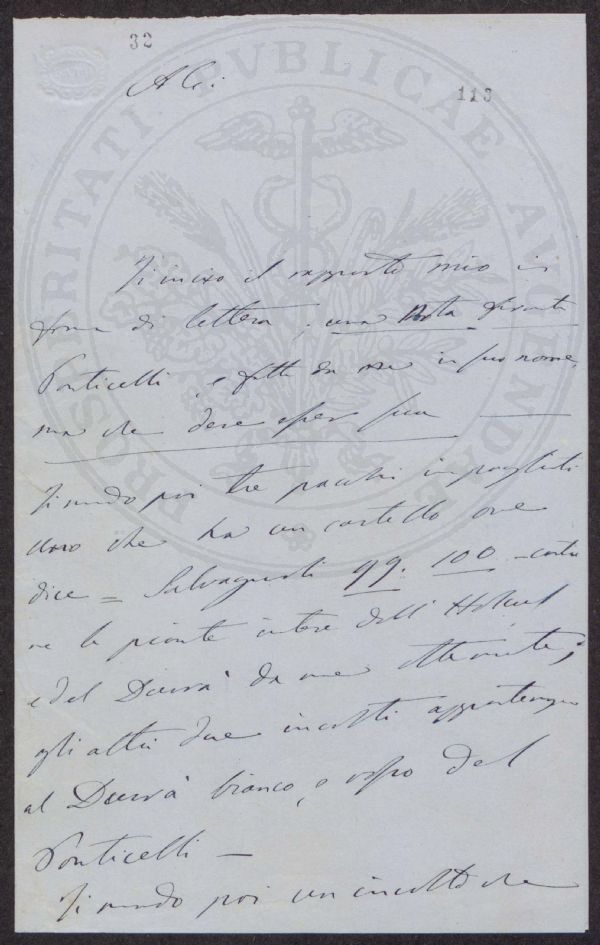 32
113
A C:
PROSPERITATI PVBLICAE AVGENDAE
Ti invio il rapporto mio in
forma di lettera, una Nota firmata
Ponticelli, e fatta da me in suo nome,
ma che deve esser sua
Ti mando poi tre pacchi impagliati
uno che ha un cartello ove
dice = Salvagnoli 99. 100 - contiene
le piante intere dell'Holcus
e del Durrà da me ottenute;
gli altri due involti appartengono
al Durrà bianco, e rosso del
Ponticelli —
Ti mando poi un involto che